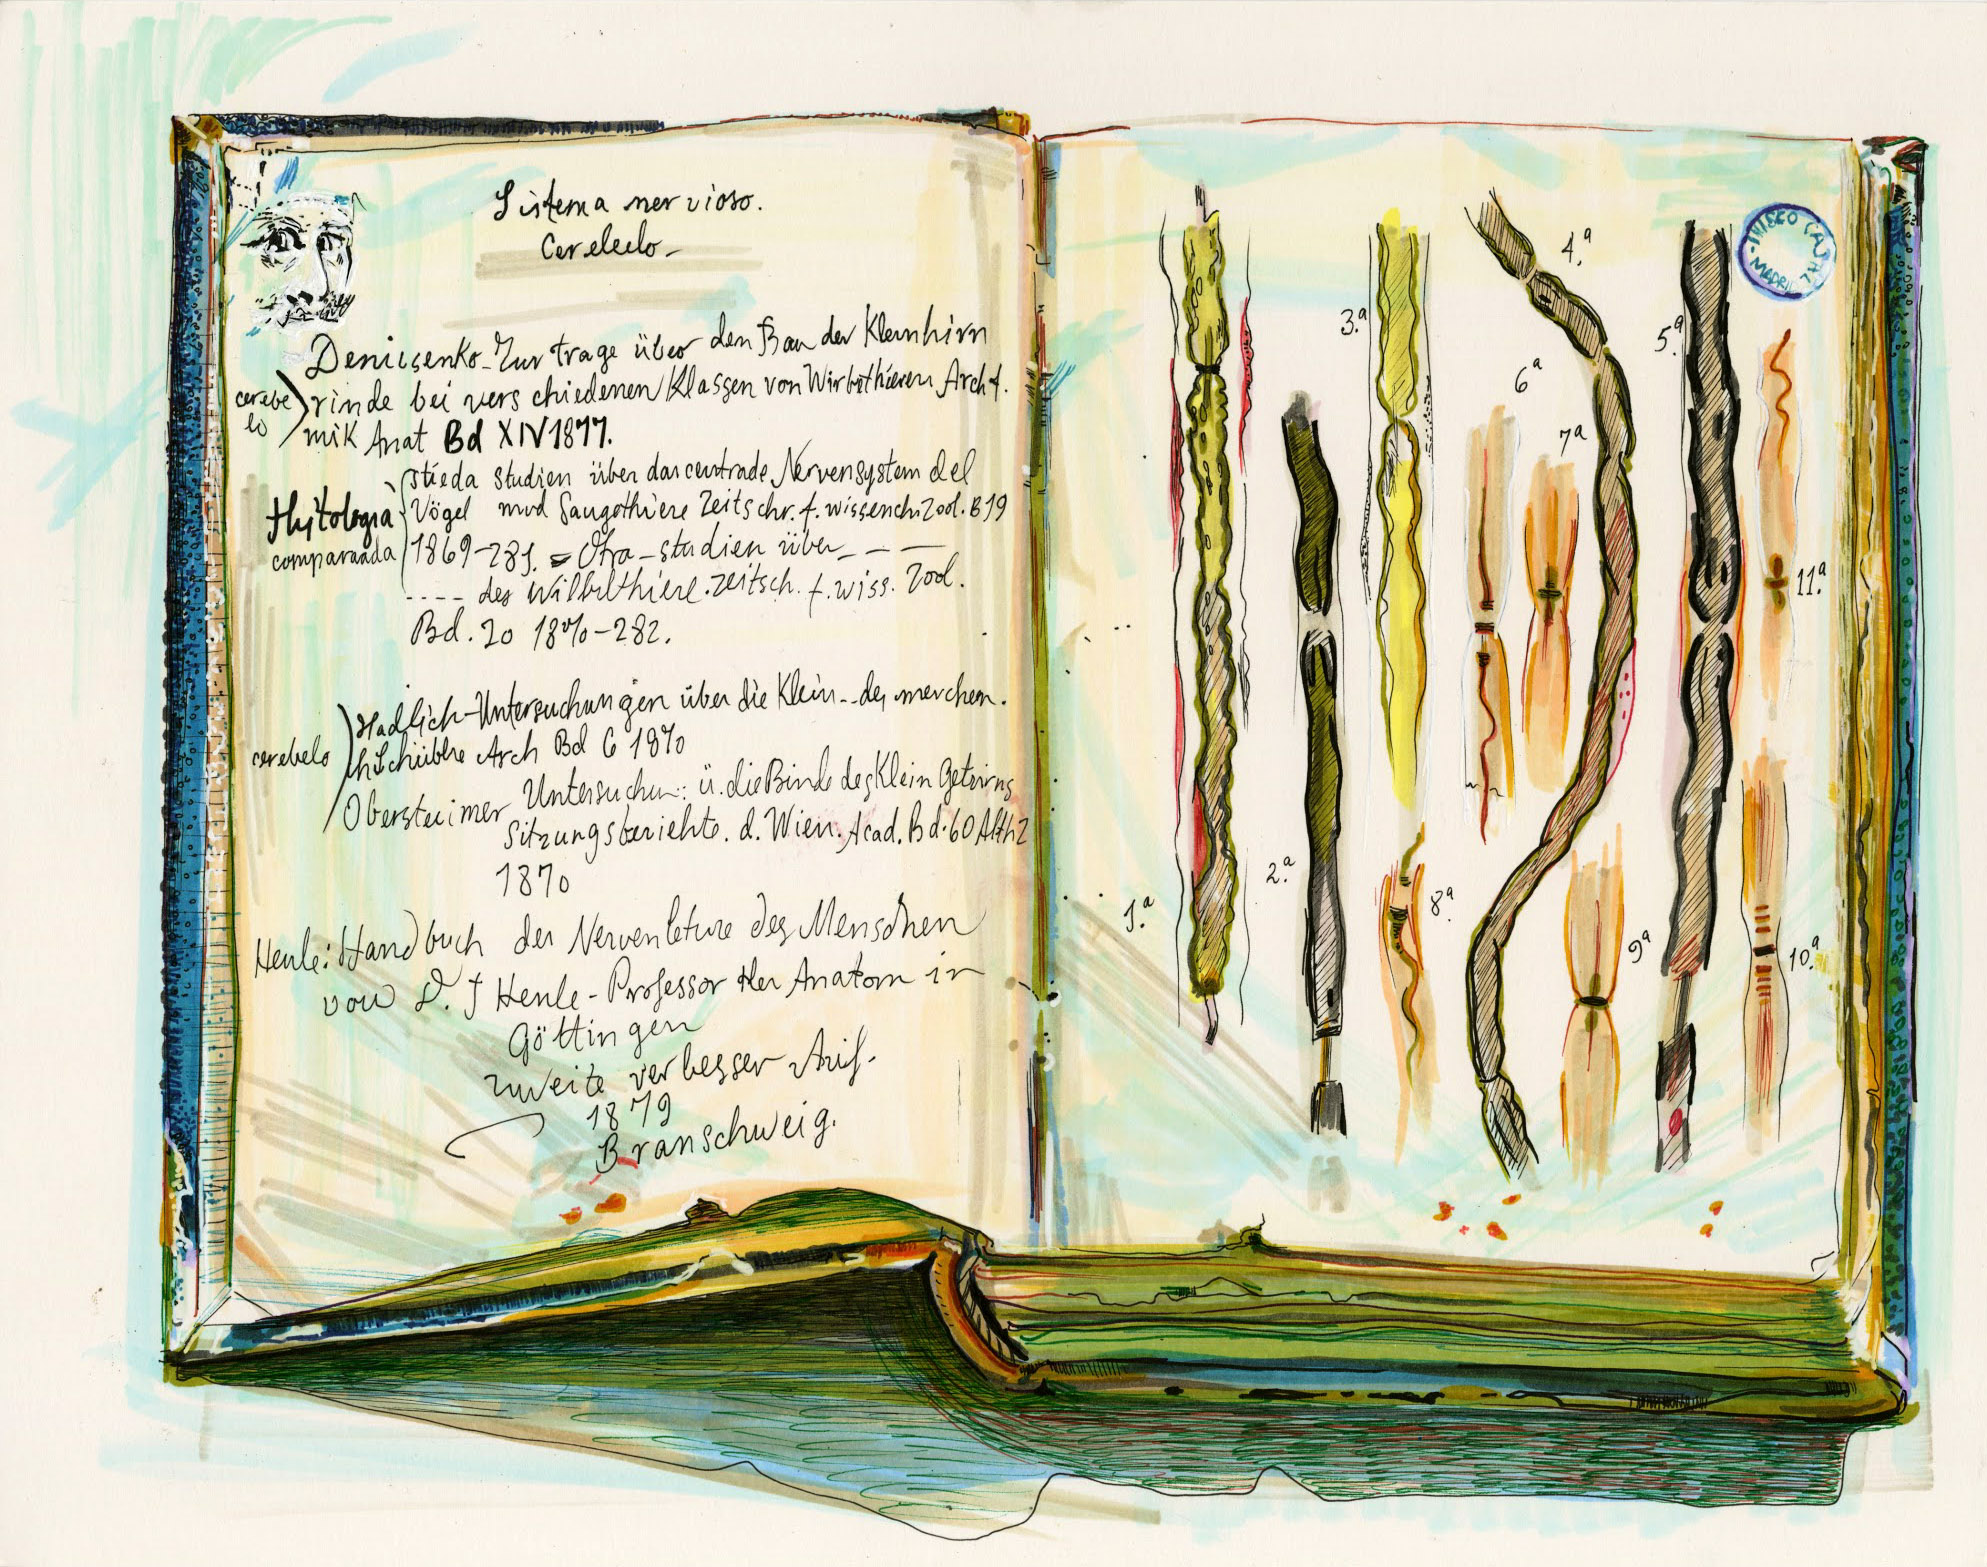 Sistema nervioso.
Cerebelo-
Denissenko-Zur Frage über den Bau der Kleinhirn
cerebe
lo
rinde bei verschiedenen Klassen von Wirbelthieren Arch f.
mik Anat Bd XIV 1877.
Histologia
comparada
Stieda studien über das centrade Nervensystem del
Vögel und Saugethiere Zeitschr. f. wissench Zool. B 19
1869-281. = Otra-studien über_ _ _
---- des Wilbelthiere. zeitsch. f. wiss. Zool.
Bd. 20 1870-282.
cerebelo
Hadlich-Untersuchungen über die Klein_ _des menchen.
Arch Bd 6 1870
Obersteimer Untersuchun: ü. die Rinde des Klein Gehirns
Sitzungsberichte. d. Wien. Acad. Bd. 60 Abth 2
1870
Henle: Handbuch der Nervenlehre des Menschen
von D. J Henle-Professor der Anatom in
Göttingen
zweite verbesser Auf-
1879
Branschweig.
1.ª
2.ª
3.ª
4.ª
5.ª
6ª
7ª
8.ª
9ª
10.ª
11.ª
MUSEO CAJAL
MADRID